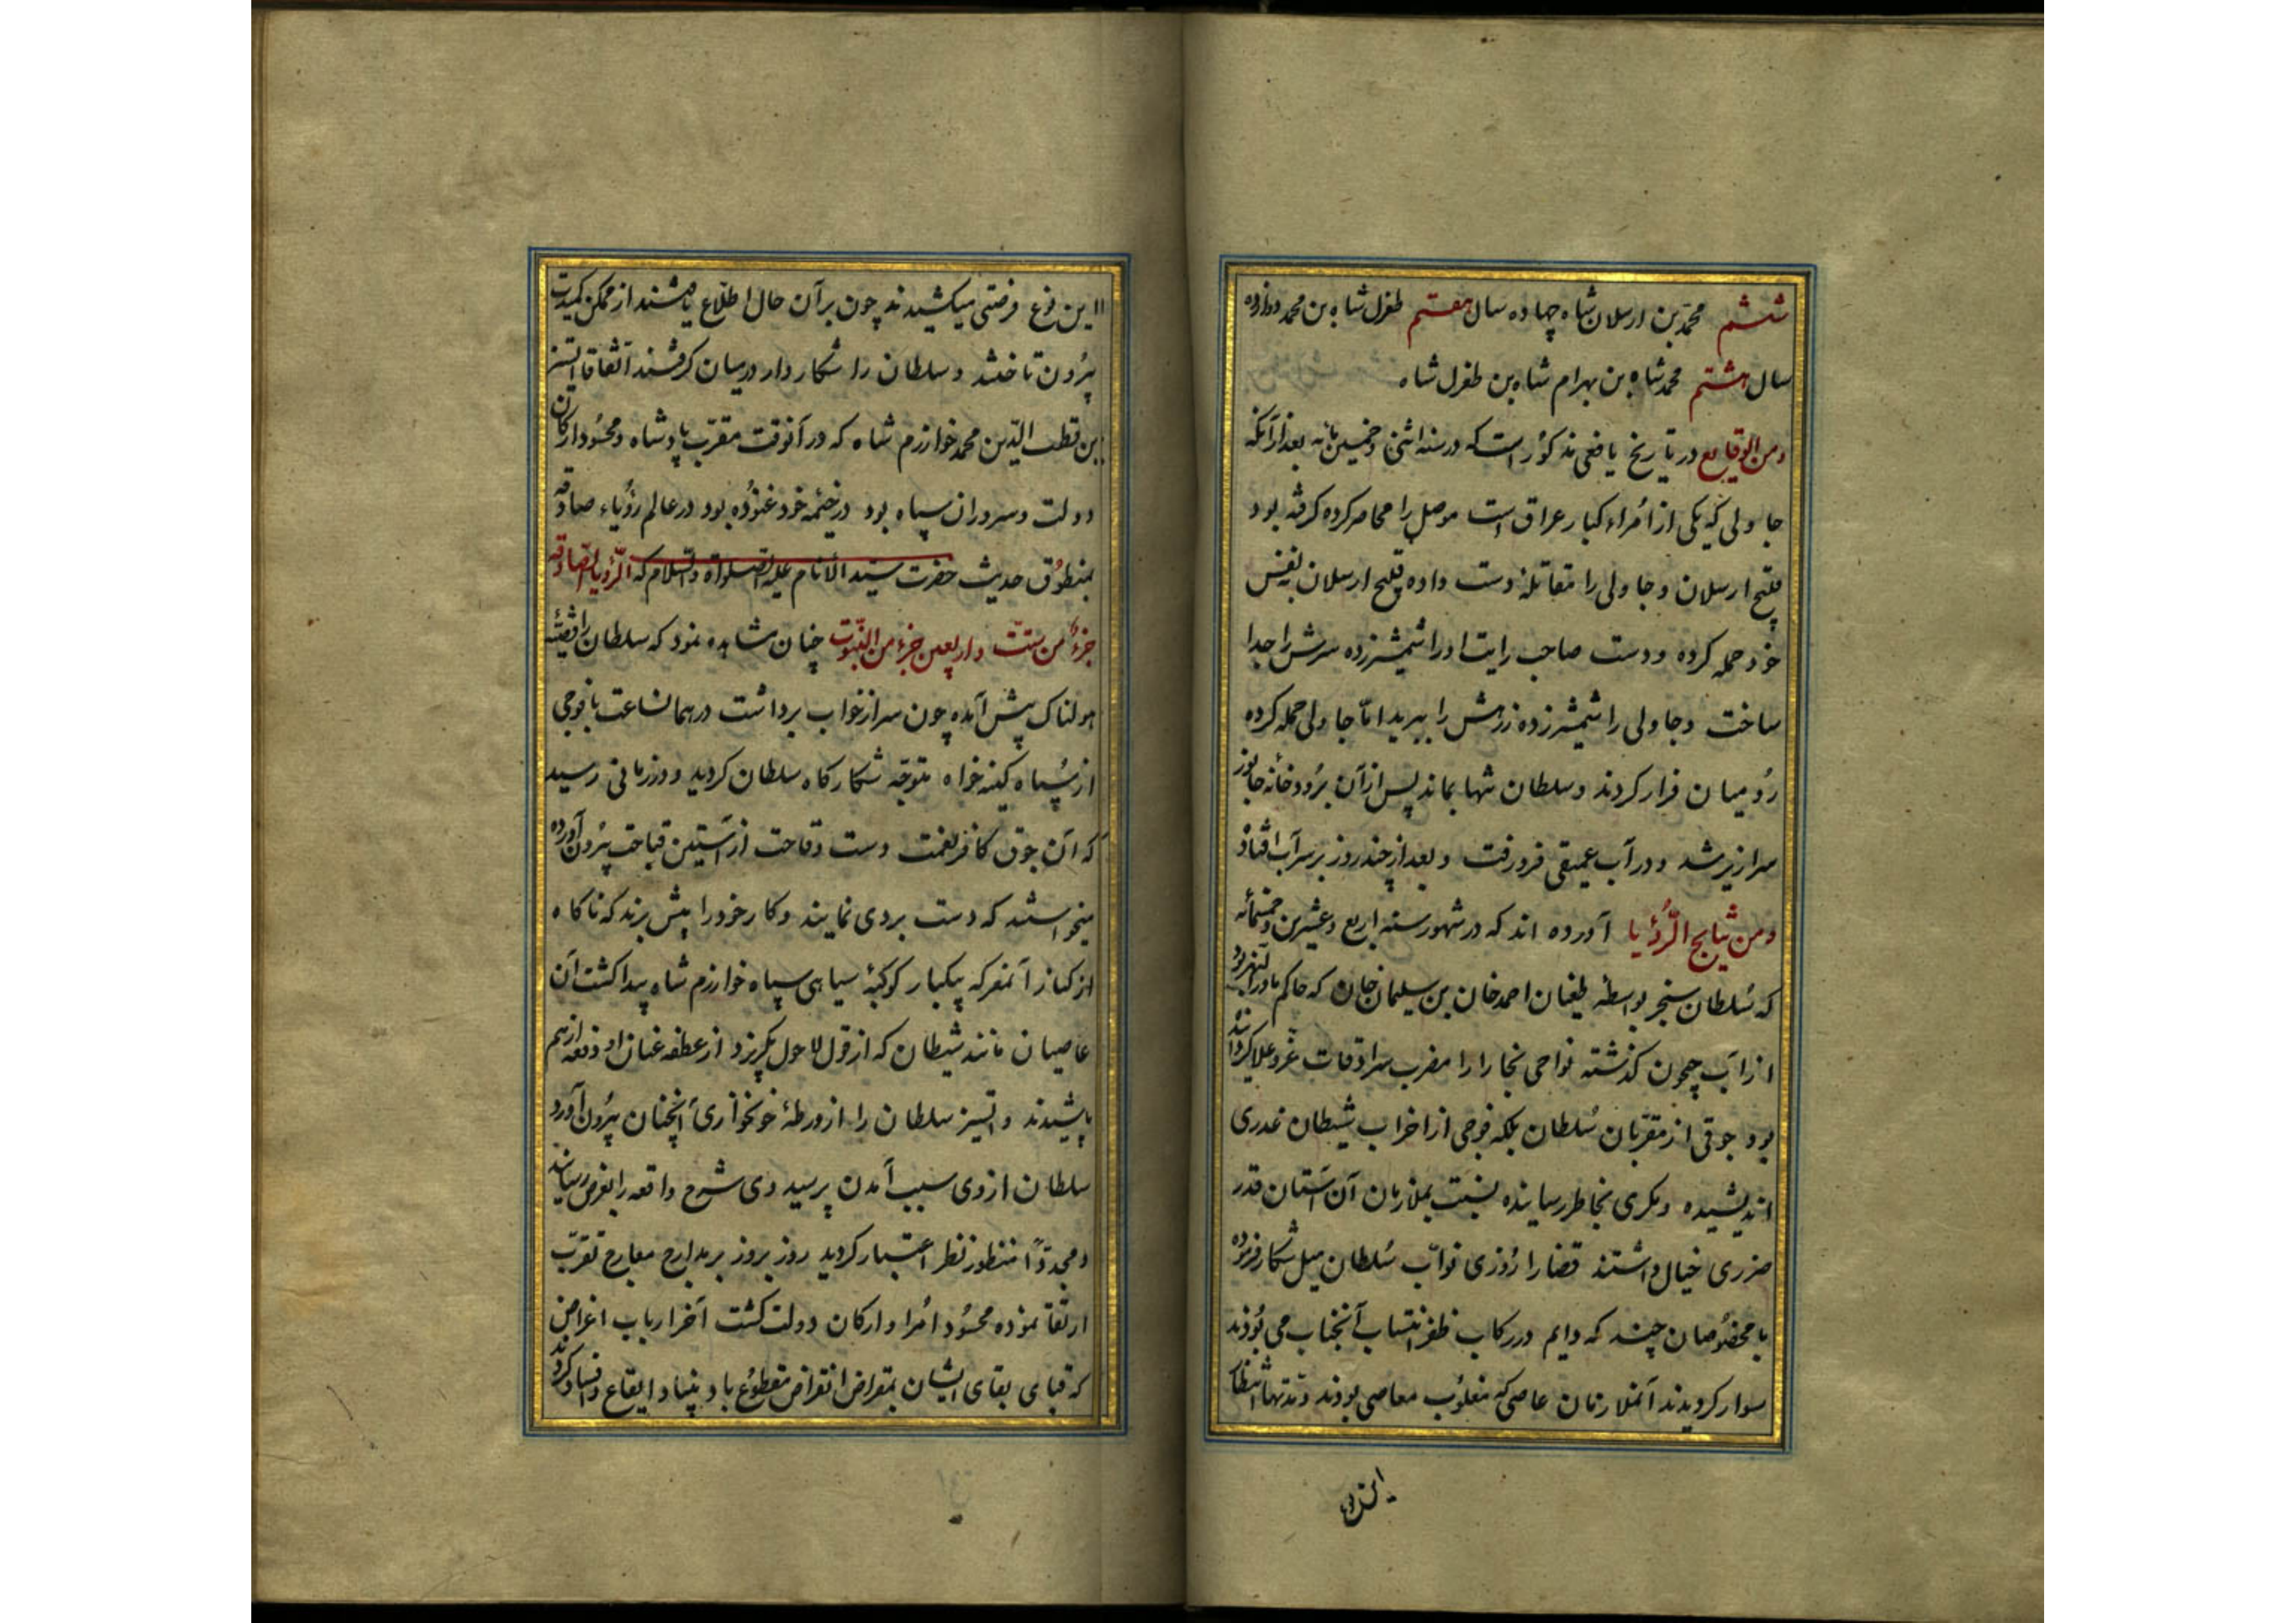 ششم محمد بن ارسلان شاه چهارده سال هفتم طغرل شاه بن محمد دوازده
سال هشتم محمد شاه بن بهرام شاه بن طغرل شاه
ومن الوقایع در تاریخ یافعی مذکور است که در سنه اثنی وخمسین مائه بعد از آنکه
جاولی که یکی از امراء کبار عراق است موصل را محاصر کرده گرفته بود
قلیج ارسلان و جاولی را مقاتله دست داده قلیج ارسلان بنفس
خود حمله کرده و دست صاحب رایت او را شمشیر زده سرش را جدا
ساخت و جاولی را شمشیر زده زرهش را ببرید اما جاولی حمله کرده
رومیان فرار کردند و سلطان تنها بماند پس از آن برودخانه
سرازیر شد و در آب عمیقی فرو رفت و بعد از چند روز بر سر آب افتاد
ومن نتایج الرؤیا آورده اند که در شهور سنه اربع وعشرین وخمسمائه
که سلطان سنجر بواسطه طغیان احمد خان بن سلیمان خان که حاکم ماورآءالنهر بود
از آب جیحون گذشته نواحی بخارا را مضرب سرادقات عز و علا گردانیده
بود جوقی از مقربان سلطان بلکه فوجی از احزاب شیطان غدری
اندیشیده و مکری بخاطر رسانیده بنسبت بملازمان آن آستان قدر
ضرری خیال داشتند قضا را روزی نواب سلطان میل شکار فرموده
با مخصوصان چند که دایم در رکاب ظفر انتساب آنجناب می بودند
سوار گردیدند آنملازمان عاصی که مغلوب معاصی بودند و مدتها انتظار
این نوع
این نوع فرصتی میکشیدند چون بر آن حال اطلاع یافتند از ممکن کمیدت
بیرون تاختند و سلطان را شکاروار در میان گرفتند اتفاقا اتسز
بن قطب الدین محمد خوارزم شاه که در آنوقت مقرب پادشاه و محسود ارکان
دولت و سروران سپاه بود در خیمه خود غنوده بود در عالم رؤیاء صادقه
بمنطوق حدیث حضرت سید الأنام علیه الصلواة والسلام که الرؤیا الصادقه
جزء من ستت واربعین جزء من النبوت چنان مشاهده نمود که سلطان را قضیه
هولناک پیش آمده چون سر از خواب برداشت در همان ساعت با فوجی
از سپاه کینه خواه متوجه شکارگاه سلطان گردید و در زمانی رسید
که آن جوق کافر نعمت دست وقاحت از آستین قباحت بیرون آورده
میخواستند که دست بردی نمایند و کار خود را پیش برند که ناگاه
از کنار آنمعرکه بیکبار کوکبۀ سیاهی سپاه خوارزم شاه پیدا گشت آن
عاصیان مانند شیطان که از قول لاحول بگریزد از عطفه عنان او دفعه از هم
پاشیدند و اتسز سلطان را از ورطۀ خونخواری آنچنان بیرون آورد
سلطان از وی سبب آمدن پرسید وی شرح واقعه را بعرض رسانید
و مجددًا منظور نظر اعتبار گردید روز بروز بر مدارج معارج تقرب
ارتقا نموده محسود امرا و ارکان دولت گشت آخر ارباب اغراض
که قبای بقای ایشان بمقراض انقراض مقطوع باد بنیاد ایقاع و افساد کردند